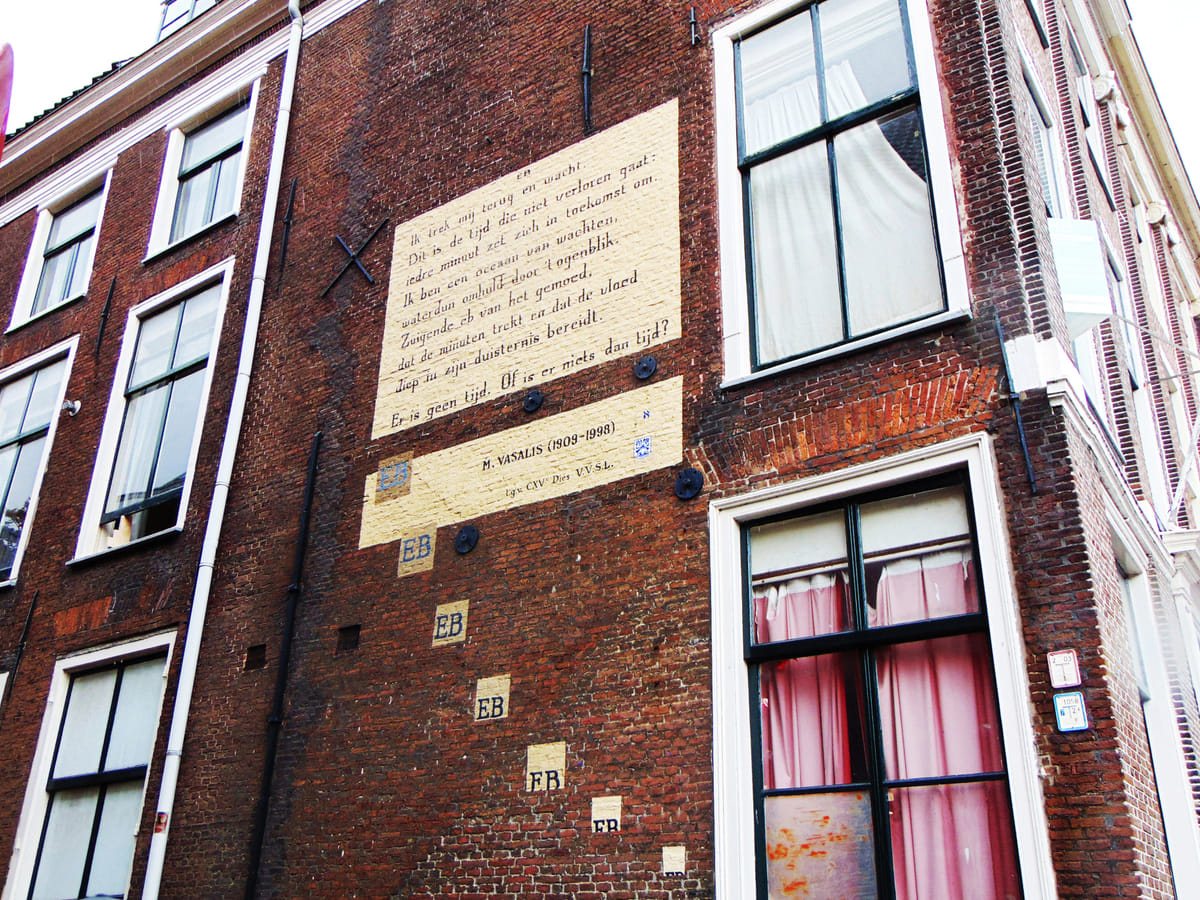 EB
Ik trek mij terug en wacht.
Dit is de tijd die niet verloren gaat:
iedre minuut zet zich in toekomst om.
Ik ben een oceaan van wachten,
waterdun omhuld door 't ogenblik.
Zuigende eb van het gemoed,
dat de minuten trekt en dat de vloed
diep in zijn duisternis bereidt.
Er is geen tijd. Of is er niets dan tijd?
M. VASALIS (1909-1998)
t.g.v. CXVᵉ Dies V.V.S.L.
8
EB
EB
EB
EB
EB
EB
EB